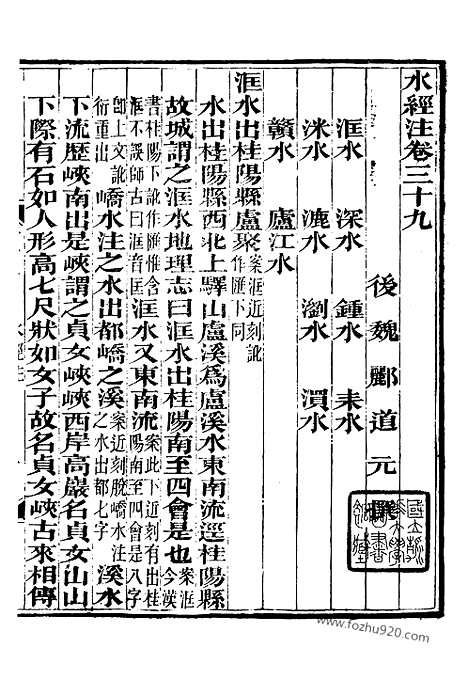 水經注卷三十九
後魏酈道元撰
洭水 深水 鍾水 耒水
洣水 漉水 瀏水 㵋水
贛水 廬江水
洭水出桂陽縣盧聚案洭近刻訛作匯下同
水出桂陽縣西北上驛山盧溪爲盧溪水東南流逕桂陽縣
故城謂之洭水地理志曰洭水出桂陽南至四會是也案洭今漢
書桂陽下訛作匯惟含洭不誤師古曰洭音匡洭水又東南流案此下近刻有出桂陽南至四會是八字
卽上文訛衍重出嶠水注之水出都嶠之溪案近刻脫嶠水注之水出都七字溪水
下流歷峽南出是峽謂之貞女峽峽西岸高巖名貞女山山
下際有石如人形高七尺狀如女子故名貞女峽古來相傳
www.fozhu920.com